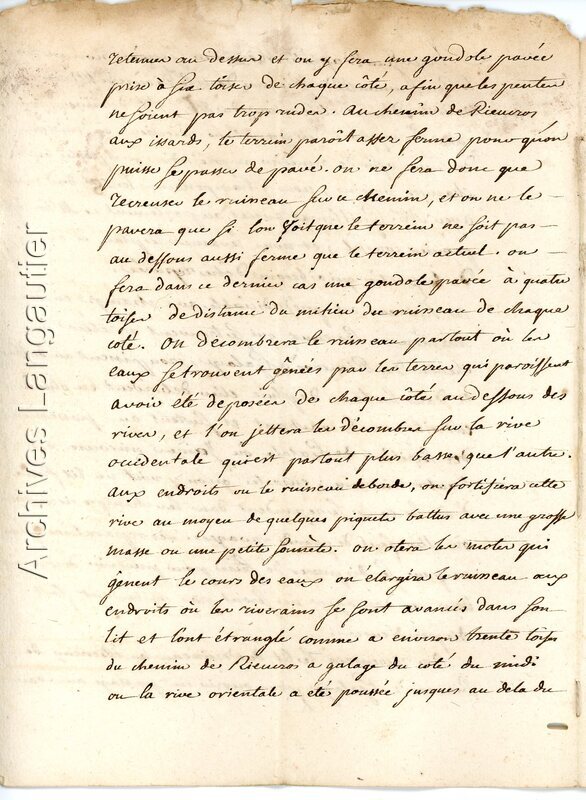 retenues au dessus et on y fera une gondole pavée
prise à six toises de chaque côté, afin que les pentes
ne soient pas trop rudes. Au chemin de Rieucros
aux issards, le terrein paroît asser ferme pour qu'on
puisse se passer de pavé. on ne fera donc que
recreuser le ruisseau sur ce chemin, et on ne le
pavera que si lon voit que le terrein ne soit pas
au dessous aussi ferme que le terrein actuel. on
fera dans ce dernier cas une gondole pavée à quatre
toises de distance du milieu du ruisseau de chaque
coté. On décombrera le ruisseau partout où les
eaux se trouvent gênées par les terres qui paroissent
avoir été deposées de chaque côté au dessous des
rives, et l'on jettera les décombres sur la rive
occidentale qui est partout plus basse que l'autre.
aux endroits ou le ruisseau deborde, on fortifiera cette
rive au moyen de quelques piquets battus avec une grosse
masse ou une petite sonnète. on otera les motes qui
gênent le cours des eaux on élargira le ruisseau aux
endroits où les riverains se sont avancés dans son
lit et l'ont étranglé comme a environ trente toises
du chemin de Rieucros a galage du coté du midi
ou la rive orientale a été poussée jusques au dela du
Archives Langautier